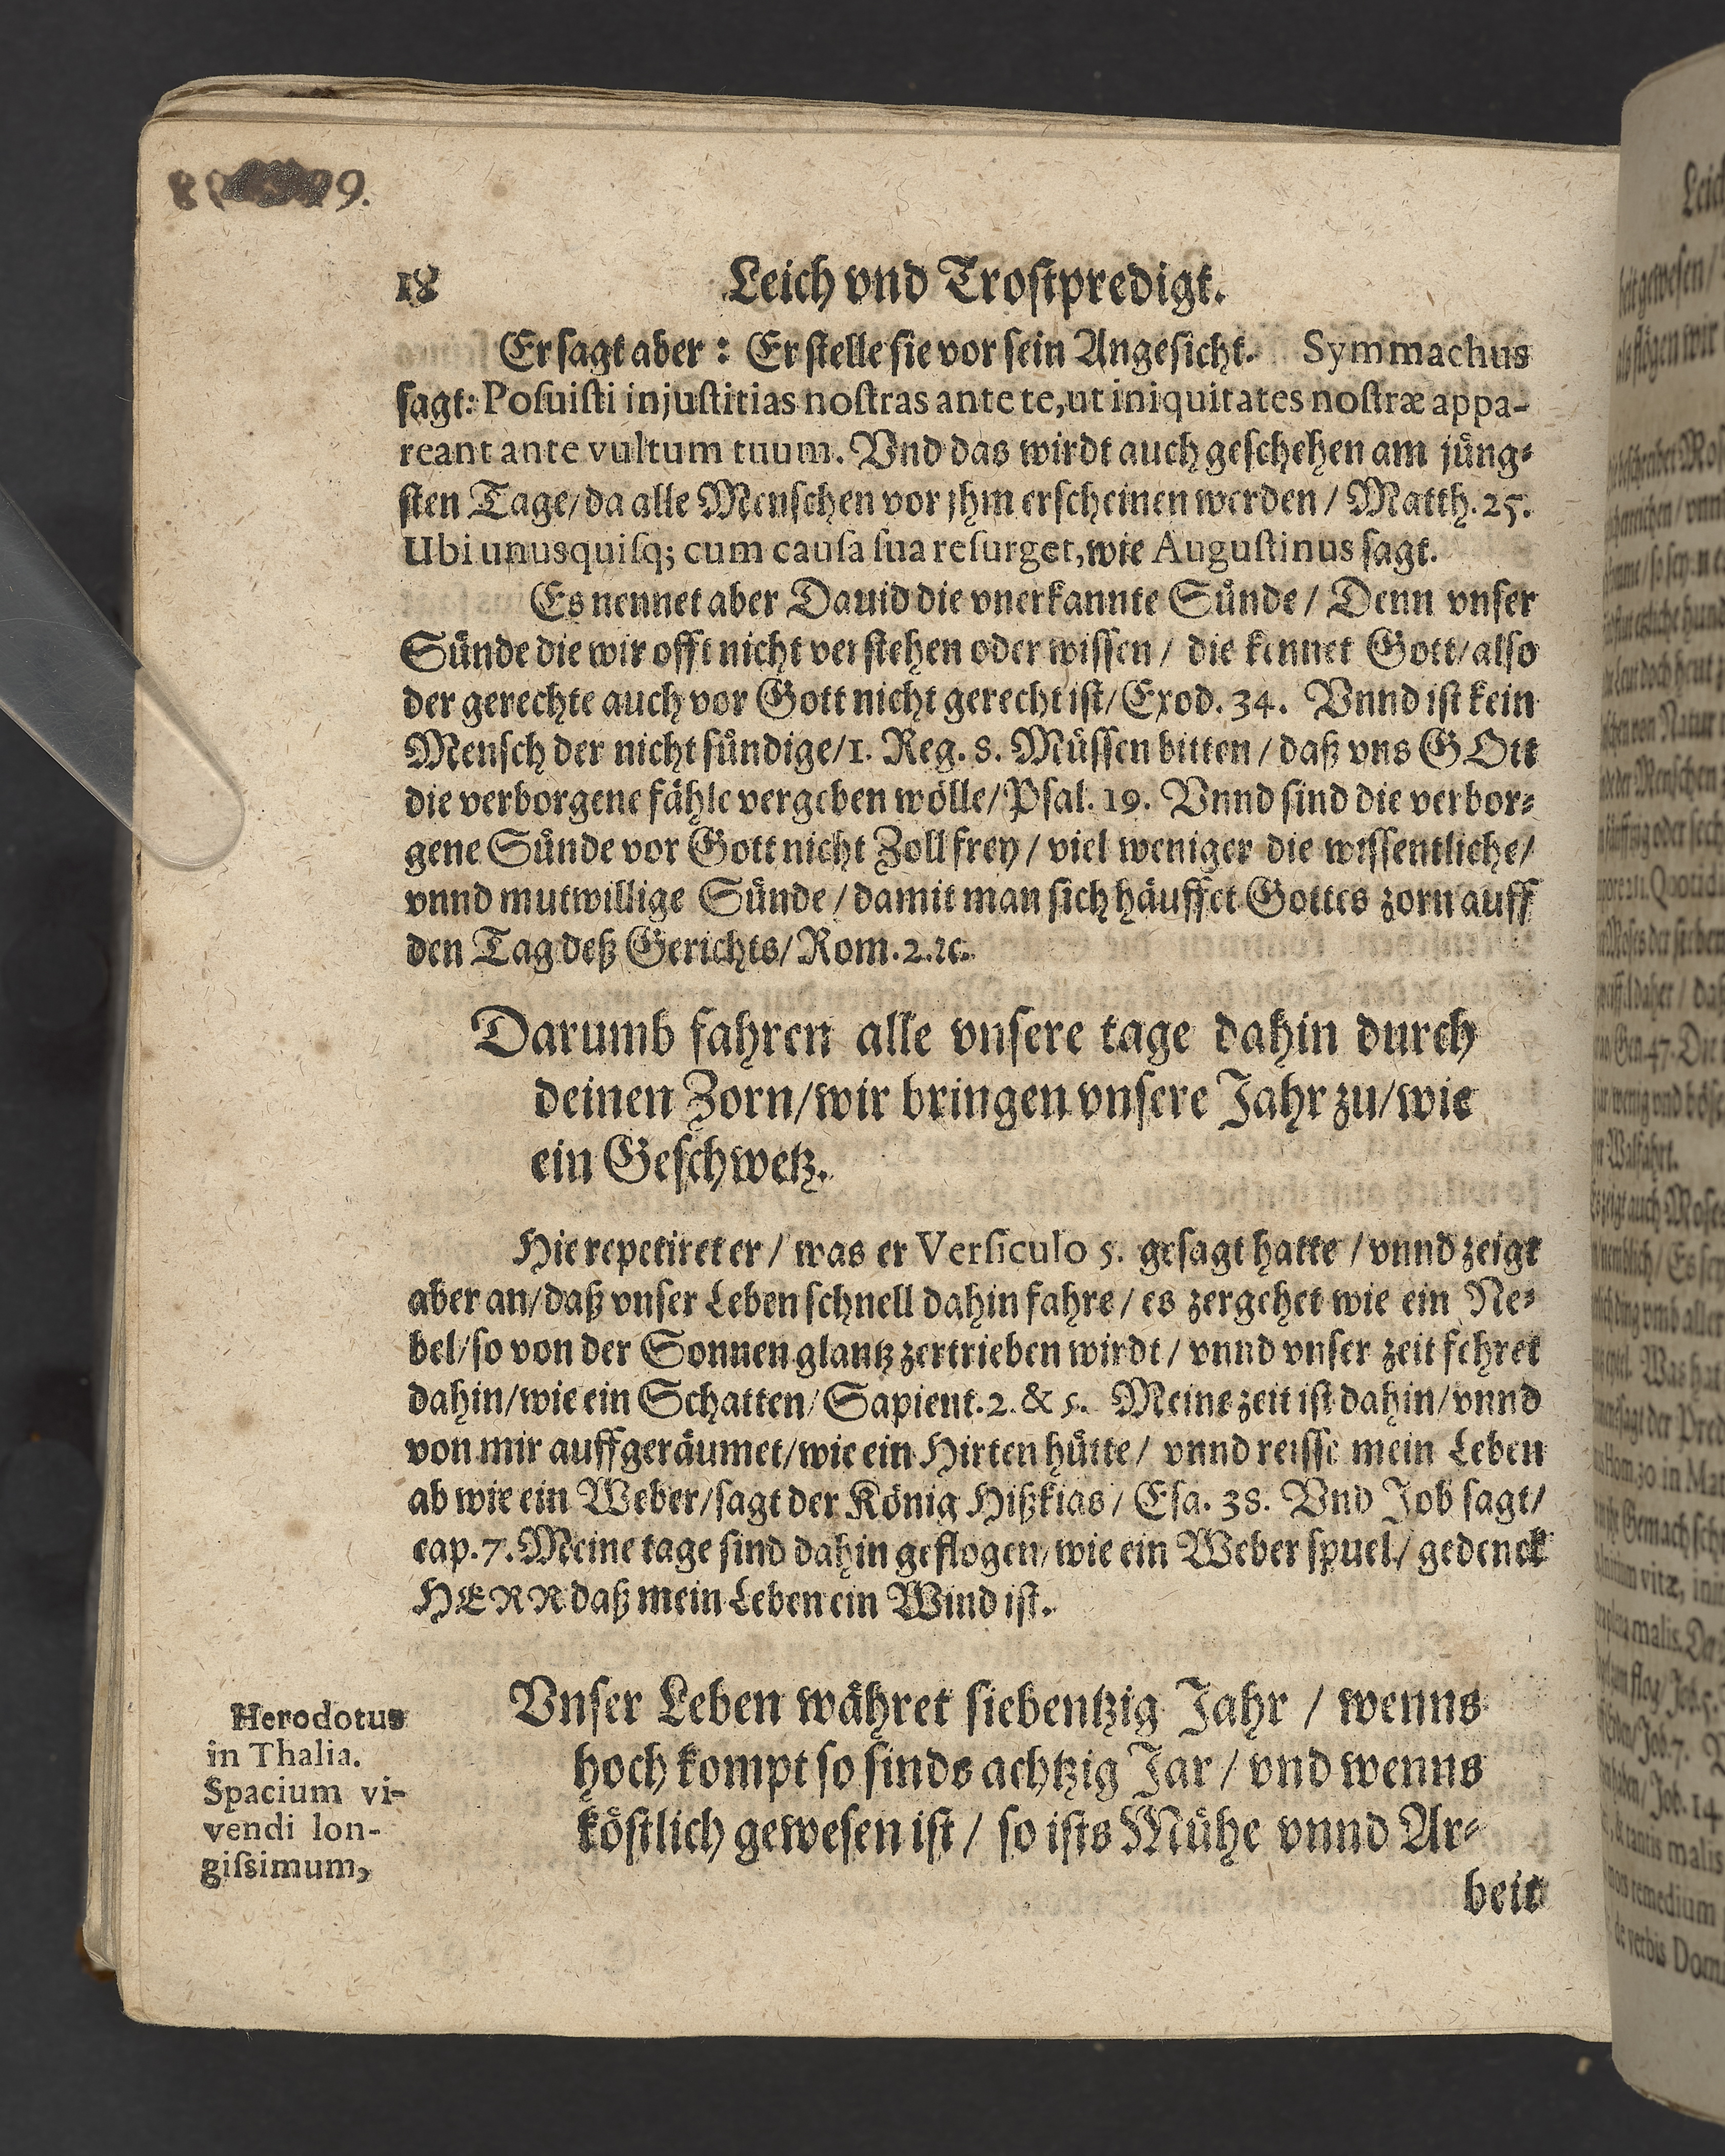 18 Leich vnd Trostpredigt.
Er sagt aber: Er stelle sie vor sein Angesicht. Symmachus
sagt: Posuisti injustitias nostras ante te, ut iniquitates nostræ appa-
reant ante vultum tuum. Vnd das wirdt auch geschehen am jüng-
sten Tage/ da alle Menschen vor jhm erscheinen werden/ Matth. 25.
Ubi unusquisq; cum causa sua resurget, wie Augustinus sagt.
Es nennet aber Dauid die vnerkannte Sünde/ Denn vnser
Sünde die wir offt nicht verstehen oder wissen/ die kennet Gott/ also
der gerechte auch vor Gott nicht gerecht ist/ Exod. 34. Vnnd ist kein
Mensch der nicht sündige/ 1. Reg. 8. Müssen bitten/ daß vns GOtt
die verborgene fähle vergeben wölle/ Psal. 19. Vnnd sind die verbor-
gene Sünde vor Gott nicht Zoll frey/ viel weniger die wissentliche/
vnnd mutwillige Sünde/ damit man sich häuffet Gottes zorn auff
den Tag deß Gerichts/ Rom. 2. ꝛc.
Darumb fahren alle vnsere tage dahin durch
deinen Zorn/ wir bringen vnsere Jahr zu/ wie
ein Geschwetz.
Hie repetiret er/ was er Versiculo 5. gesagt hatte/ vnnd zeigt
aber an/ daß vnser Leben schnell dahin fahre/ es zergehet wie ein Ne-
bel/ so von der Sonnen glantz zertrieben wirdt/ vnnd vnser zeit fehret
dahin/ wie ein Schatten/ Sapient. 2. & 5. Meine zeit ist dahin/ vnnd
von mir auffgeräumet/ wie ein Hirten hütte/ vnnd reisse mein Leben
ab wie ein Weber/ sagt der König Hißkias/ Esa. 38. Vnd Job sagt/
cap. 7. Meine tage sind dahin geflogen/ wie ein Weber spuel/ gedenck
HERR daß mein Leben ein Wind ist.
Vnser Leben währet siebentzig Jahr/ wenns
hoch kompt so sinds achtzig Jar/ vnd wenns
köstlich gewesen ist/ so ists Mühe vnnd Ar-
beit
Herodotus
in Thalia.
Spacium vi-
vendi lon-
gissimum,